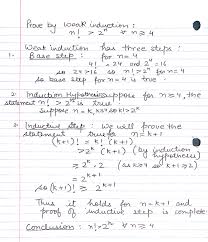 Prove by weak induction:
n! > 2^n ∀ n ≥ 4
Weak induction has three steps:
1. Base step: for n=4
4! = 24 and 2^4 = 16
so 24 > 16 so n! > 2^n for n=4
so base step for n=4 is true
2. Induction Hypothesis: suppose for n ≥ 4, the
statement n! > 2^n is true
Suppose n=k, k ≥ 4 so k! > 2^k
3. Inductive step: We will prove the
statement true for n=k+1
(k+1)! = k! (k+1)
>2^k (k+1) (by induction
hypothesis)
≥ 2^k · 2 (as k ≥ 4 so k+1 ≥ 2)
= 2^{k+1}
so (k+1)! ≥ 2^{k+1}
Thus it holds for n=k+1 and
proof of inductive step is complete
Conclusion: n! > 2^n ∀ n ≥ 4